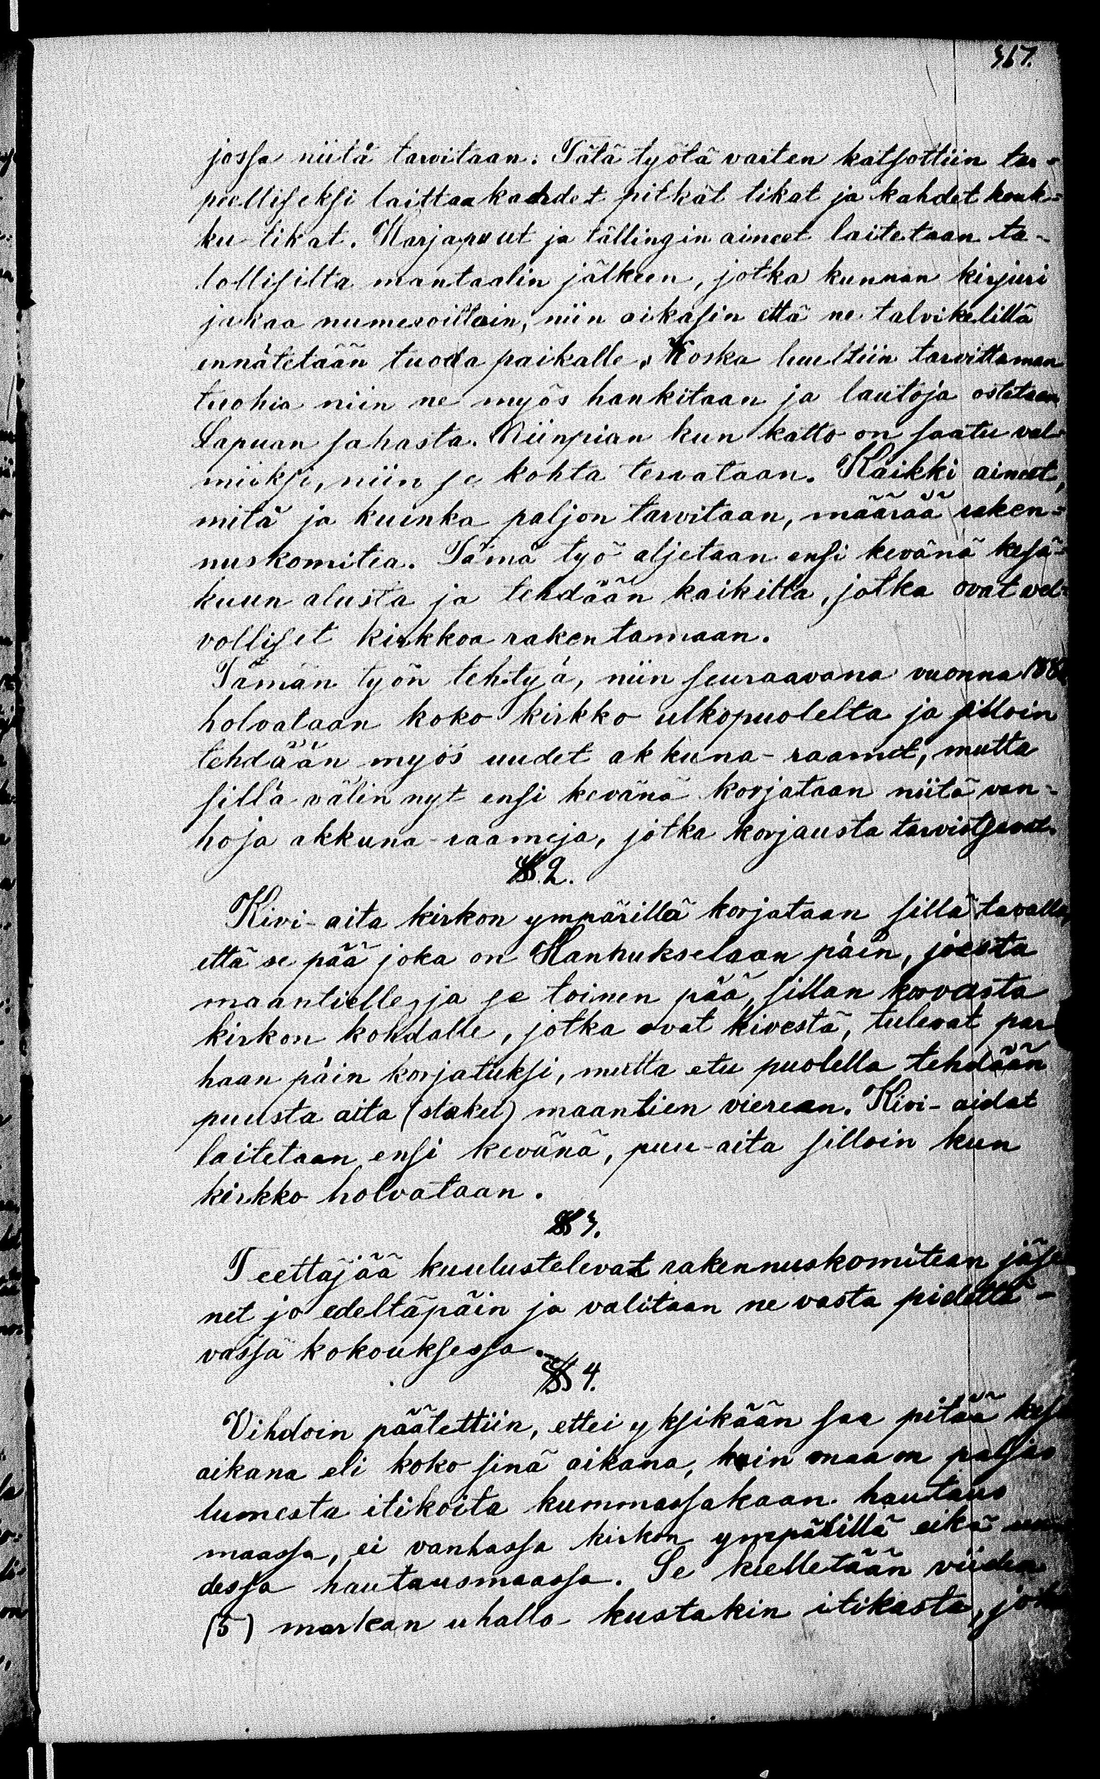 367.
jossa niitä tarvitaan. Tätä työtä varten katsottiin tar-
peelliseksi laittaa kahdet pitkät tikat ja kahdet kouk-
ku tikat. Harjapuut ja tällingin aineet laitetaan ta-
lollisilta mantaalin jälkeen, jotka kunnan kirjuri
jakaa numeroittain, niin aikasin että ne talvikelillä
ennätetään tuoda paikalle. Koska luultiin tarvittaman
tuohia niin ne myös hankitaan ja lautoja ostetaan
Lapuan sahasta. Niinpian kun katto on saatu val-
miiksi, niin se kohta tervataan. Kaikki aineet,
mitä ja kuinka paljon tarvitaan, määrää raken-
nuskomitea. Tämä työ aljetaan ensi kevänä kesä-
kuun alusta ja tehdään kaikilta, jotka ovat vel-
volliset kirkkoa rakentamaan.
Tämän työn tehtyä, niin seuraavana vuonna
holvataan koko kirkko ulkopuolelta ja silloin
tehdään myös uudet akkuna-raamit, mutta
sillä välin nyt ensi kevänä korjataan niitä van-
hoja akkuna-raameja, jotka korjausta
§ 2.
Kivi-aita kirkon ympärillä korjataan sillä tavalla,
että se pää joka on Hanhukselaan päin, joesta
maantielle, ja se toinen pää, sillan korvasta
kirkon kohdalle, jotka ovat kivestä, tulevat par
haan päin korjatuksi, mutta etu puolella tehdään
puusta aita (staket) maantien viereen. Kivi-aidat
laitetaan ensi kevänä, puu-aita silloin kun
kirkko holvataan.
§ 3.
Teettäjää kuulustelevat rakennuskomitean jäse
net jo edeltäpäin ja valitaan ne vasta pidettä-
vässä kokouksessa.
§ 4.
Vihdoin päätettiin, ettei yksikään saa pitää kesä
aikana eli koko sinä aikana, kuin maa on paljas
lumesta itikoita kummassakaan hautaus
maassa, ei vanhassa kirkon ympärillä eikä uu
dessa hautausmaassa. Se kielletään viiden
(5) markan uhalla kustakin itikasta, joka